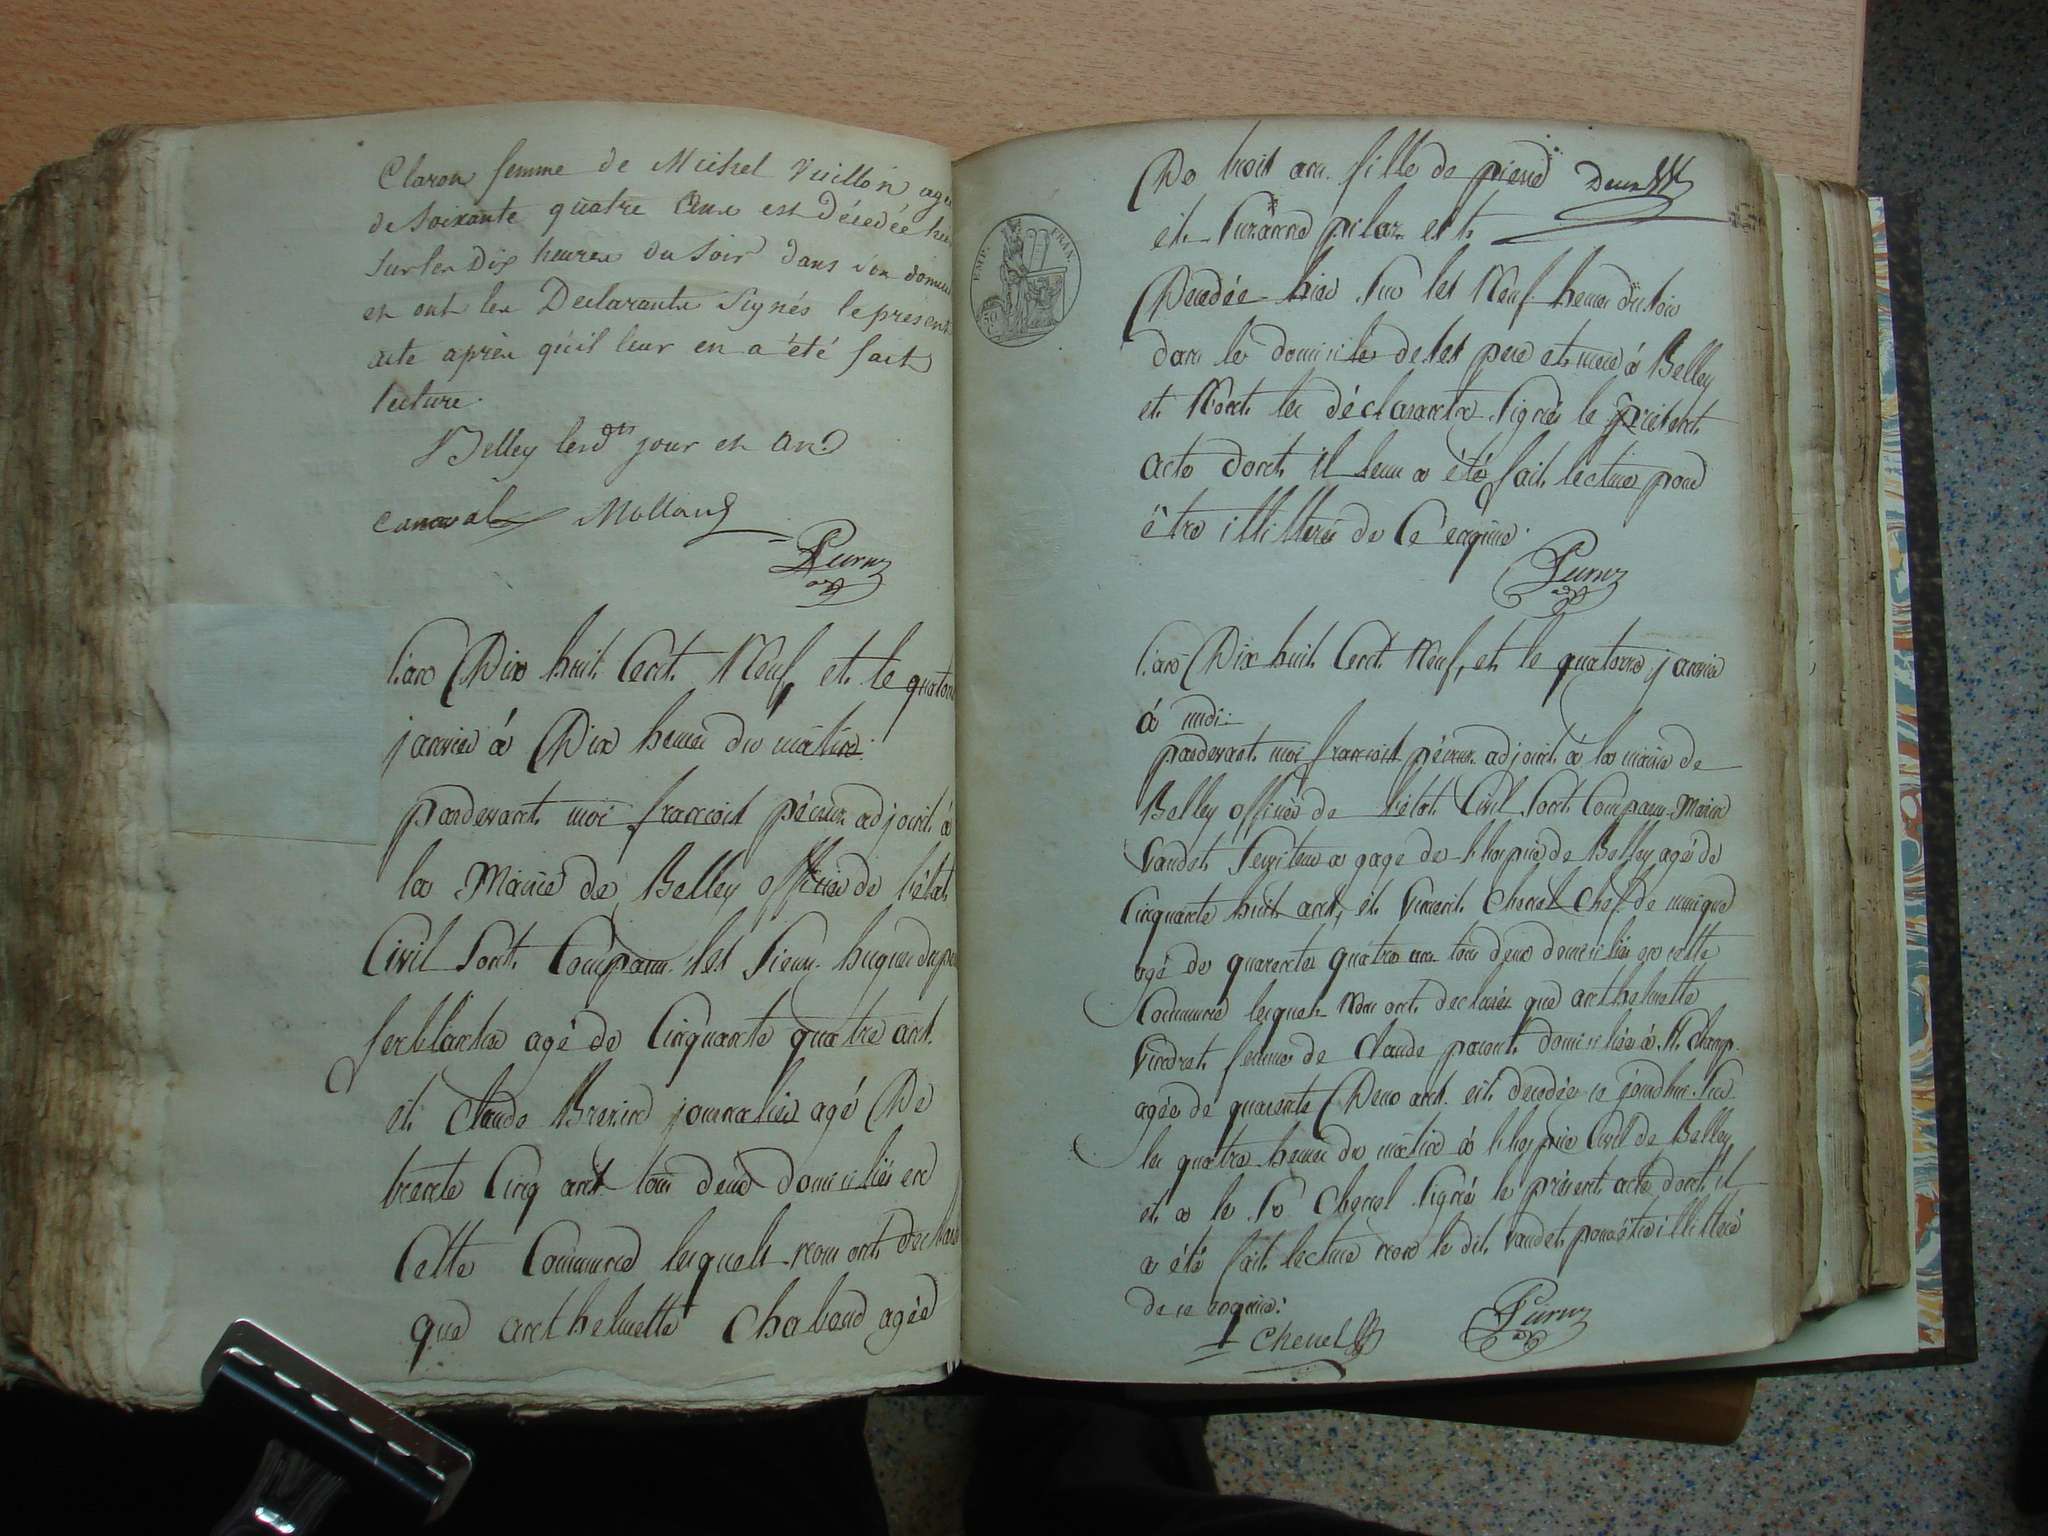 Claron femme de Michel Vuillon agée
de Soixante quatre Ans est décédée hier
sur les Dix heures du Soir dans son domicile
et ont les Declarants Signés le présent
acte après qu'il leur en a été fait
lecture.
Belley lesd. jour et an
Canaval Mollard
L'an Dix huit Cent Neuf, et le quatorze
janvier à Dix heures du matin
pardevant moi françois pécour adjoint à
la Mairie de Belley officier de l'état
Civil sont Comparu les Sieurs hugues
ferblantier agé de Cinquante quatre ans
et Claude journalier agé De
trente Cinq ans tous deux domiciliés en
Cette Commune lesquels nous ont declaré
que anthelmette Chaboud agée
De trois ans fille de pierre
et Suzanne pilar est
Decedée hier sur les Neuf heures du soir
dans le domicile de ses pere et mere à Belley
et N'ont les déclarants signés le présent
acte dont il leur a été fait lecture pour
être illitterés de Ce enquis
L'an Dix huit Cent Neuf, et le quatorze janvier
à midi
pardevant moi françois pécour adjoint à la mairie de
Belley officier de l'état Civil sont Comparu Marin
Vaudet Serviteur a gage de l'hospice de Belley agé de
Cinquante huit ans, et Vincent Chenel Chef de musique
agé de quarente quatre ans tous deux domiciliés en cette
Commune lesquels Nous ont declarés que anthelmette
Vindret femme de Claude parent domiciliée à St. Champ
agée de quarente Deux ans est decedée ce jourd'hui sur
les quatre heures du matin à l'hospice Civil de Belley
et a le Sr Chenel signé le présent acte dont il
a été fait lecture non le dit Vaudet pour être illitteré
de ce enquis
Chenel
EMP. FRAN.
50